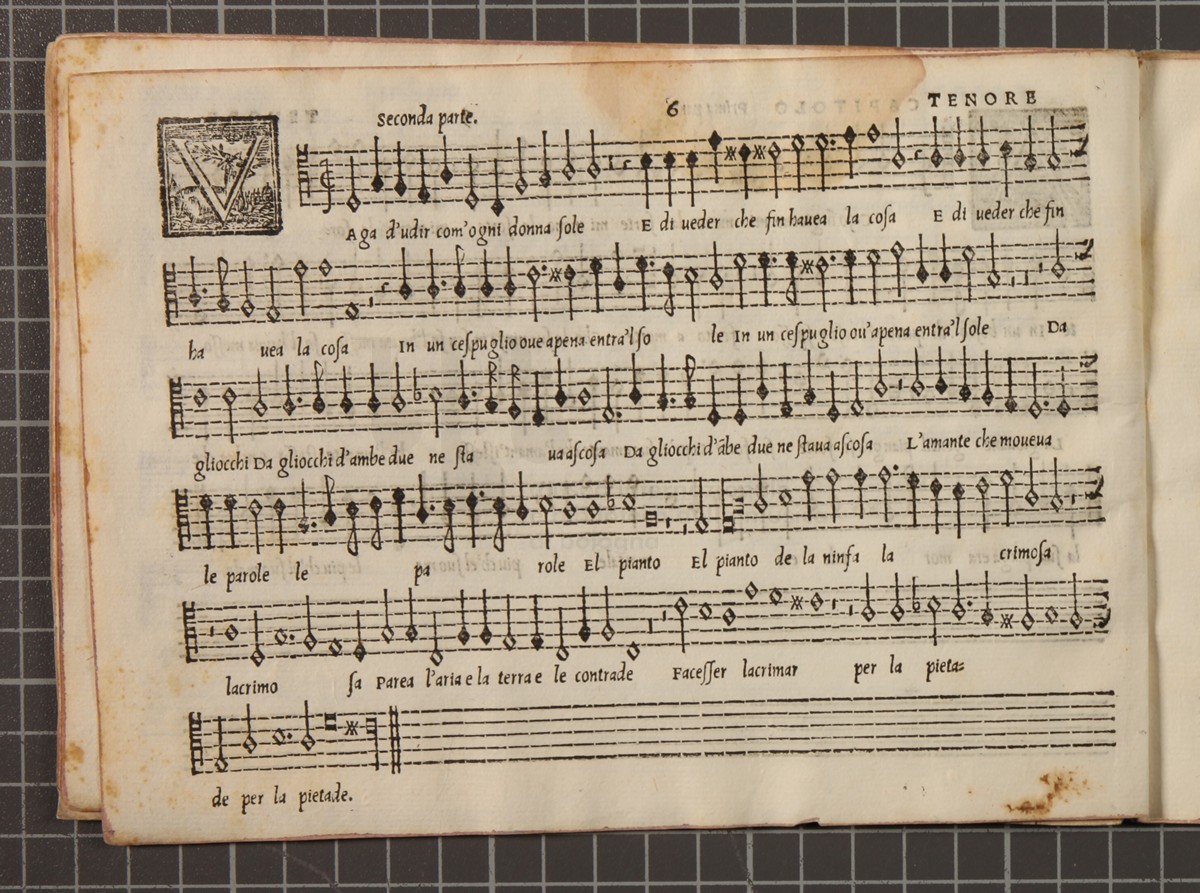 Seconda parte. 6 TENORE
VAga d'udir com'ogni donna ſole E di ueder che fin hauea la coſa E di ueder che fin
ha uea la coſa In un ceſpuglio oue apena entra'l ſo le In un ceſpuglio ou'apena entra'l ſole Da
gliocchi Da gliocchi d'ambe due ne ſta ua aſcoſa Da gliocchi d'ãbe due ne ſtaua aſcoſa L'amante che moueua
le parole le pa role El pianto El pianto de la ninfa la crimoſa
lacrimo ſa Parea l'aria e la terra e le contrade Faceſſer lacrimar per la pieta=
de per la pietade.